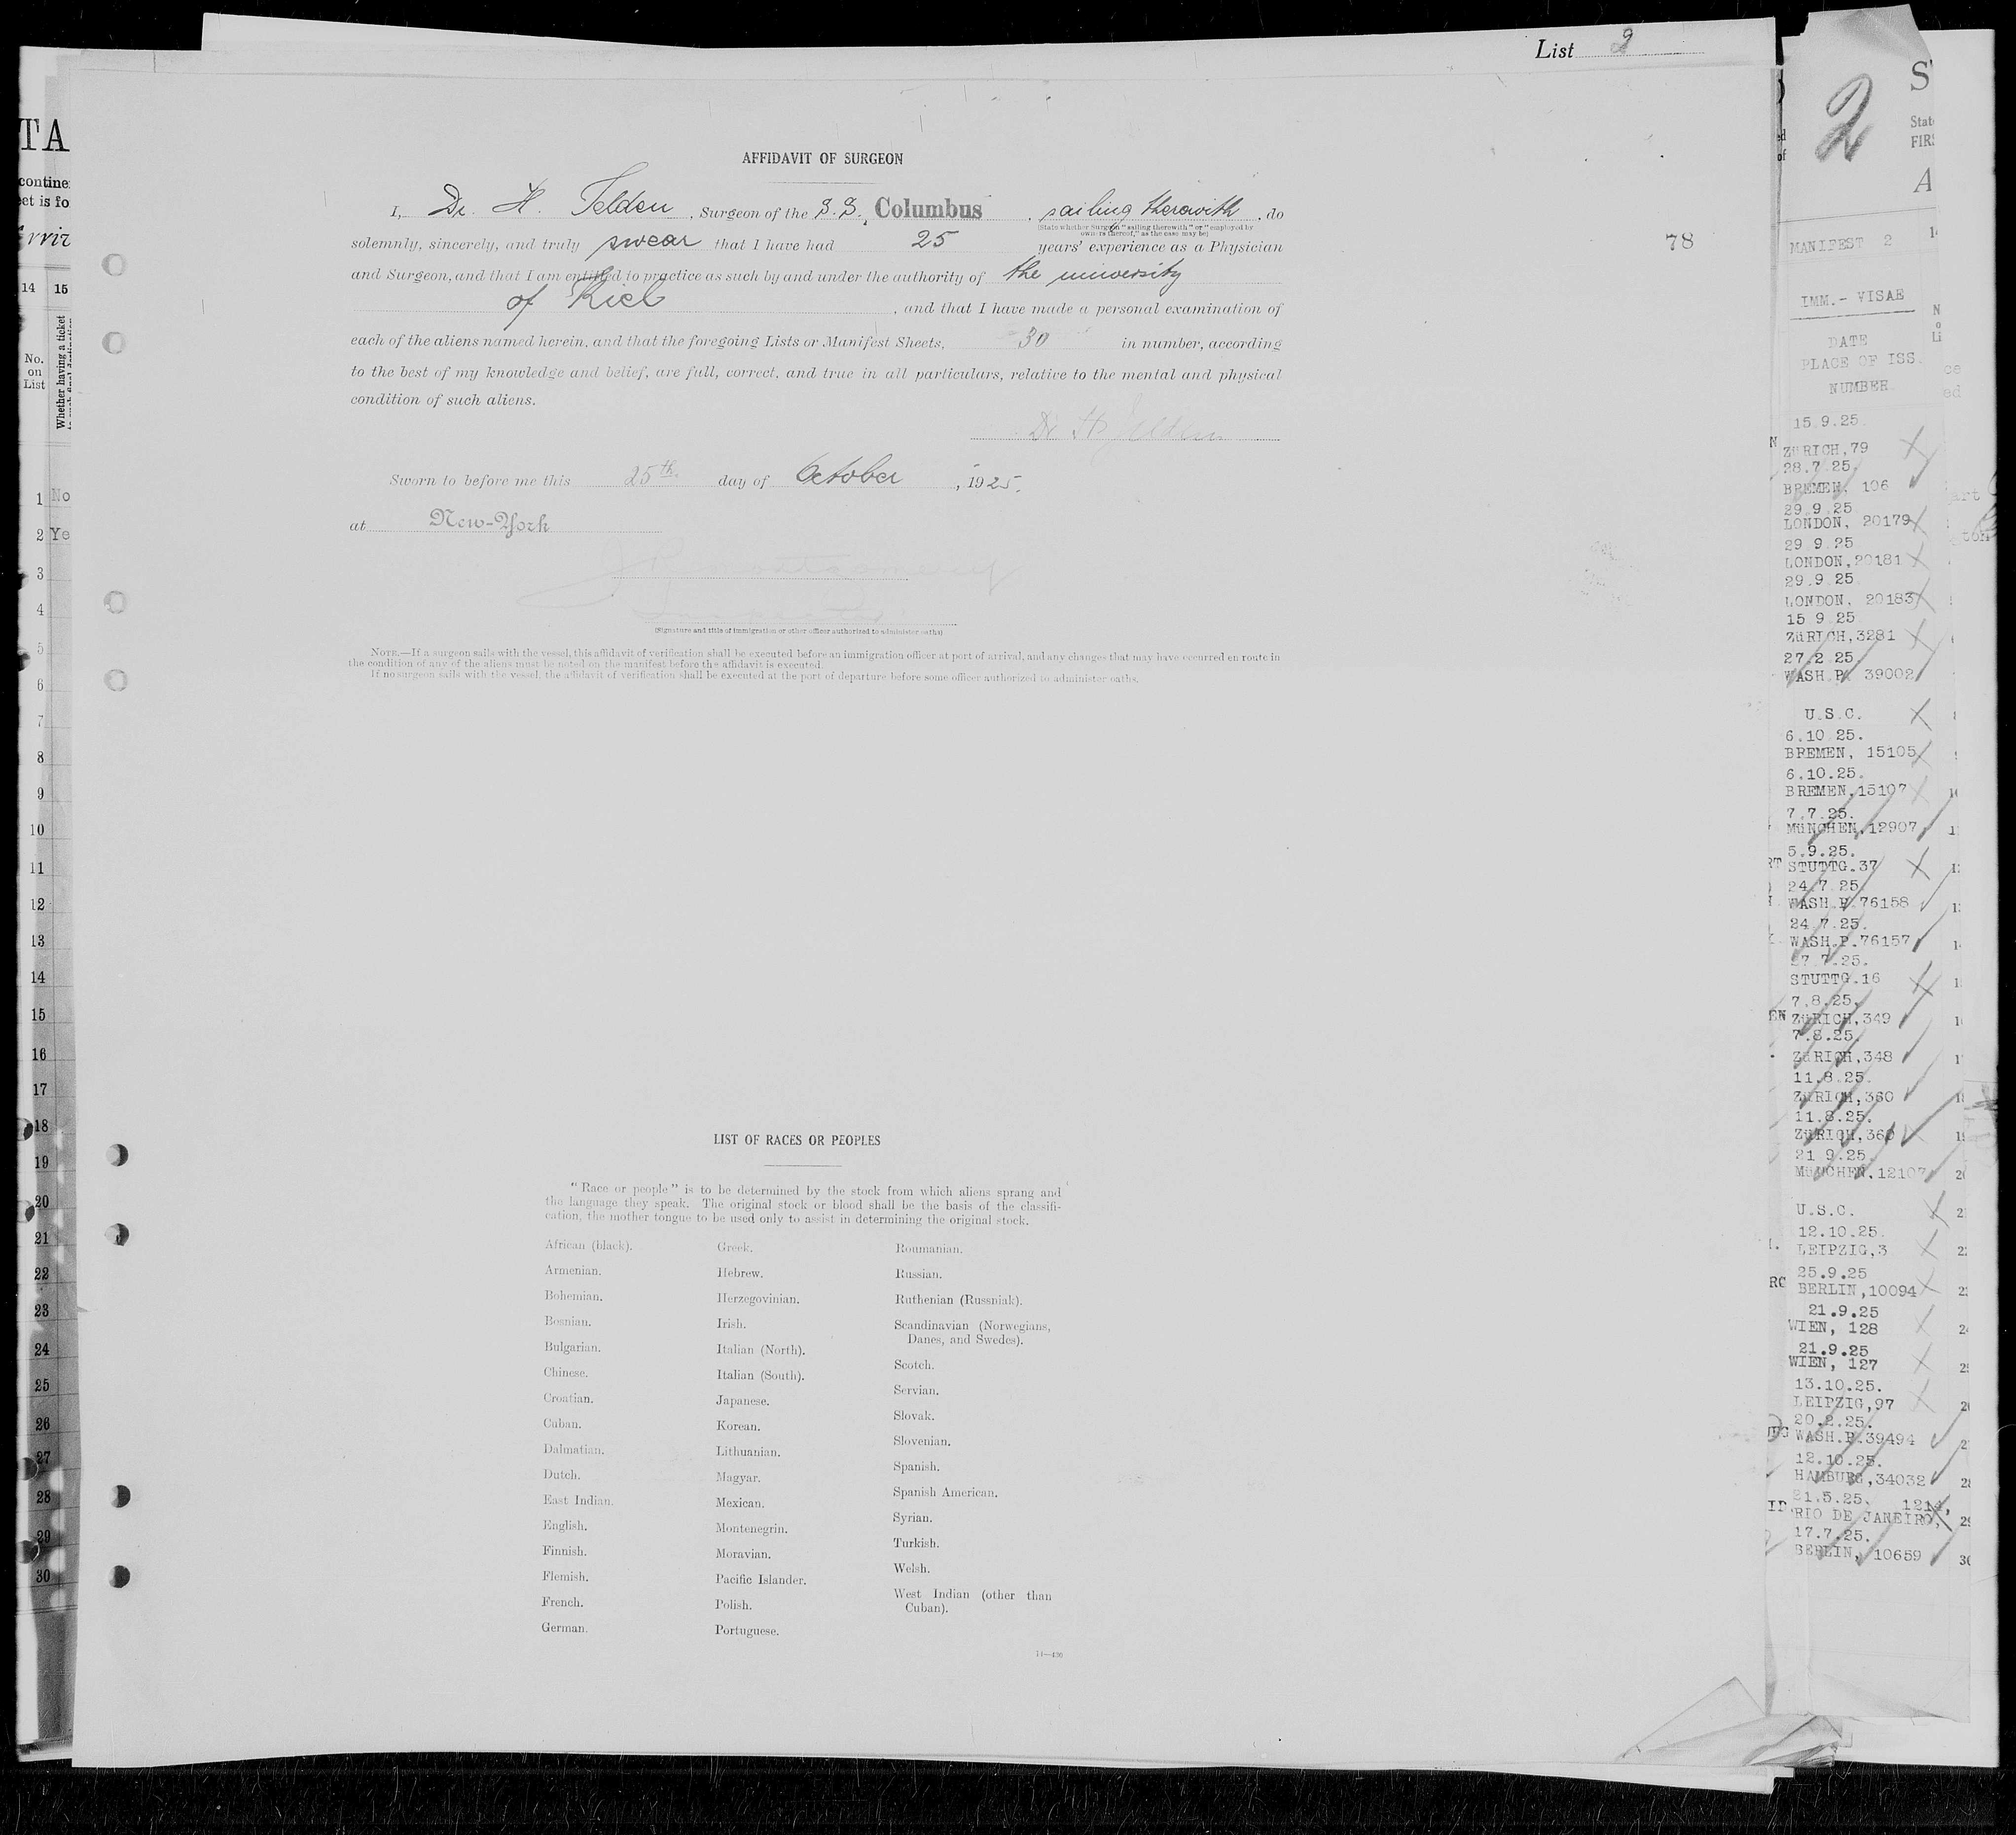 List 2
AFFIDAVIT OF SURGEON
I, Dr. H. Felden, Surgeon of the S.S. Columbus, sailing therewith, do
(State whether Surgeon "sailing therewith" or "employed by
owners thereof," as the case may be)
solemnly, sincerely, and truly swear that I have had 25 years' experience as a Physician
and Surgeon, and that I am entitled to practice as such by and under the authority of the university
of Kiel, and that I have made a personal examination of
each of the aliens named herein, and that the foregoing Lists or Manifest Sheets, 30 in number, according
to the best of my knowledge and belief, are full, correct, and true in all particulars, relative to the mental and physical
condition of such aliens.
Dr H Felden
Sworn to before me this 25th day of October, 1925.
at New-York
(Signature and title of immigration or other officer authorized to administer oaths)
NOTE.—If a surgeon sails with the vessel, this affidavit of verification shall be executed before an immigration officer at port of arrival, and any changes that may have occurred en route in
the condition of any of the aliens must be noted on the manifest before the affidavit is executed.
If no surgeon sails with the vessel, the affidavit of verification shall be executed at the port of departure before some officer authorized to administer oaths.
78
LIST OF RACES OR PEOPLES
"Race or people" is to be determined by the stock from which aliens sprang and
the language they speak. The original stock or blood shall be the basis of the classifi-
cation, the mother tongue to be used only to assist in determining the original stock.
African (black).
Armenian.
Bohemian.
Bosnian.
Bulgarian.
Chinese.
Croatian.
Cuban.
Dalmatian.
Dutch.
East Indian.
English.
Finnish.
Flemish.
French.
German.
Greek.
Hebrew.
Herzegovinian.
Irish.
Italian (North).
Italian (South).
Japanese.
Korean.
Lithuanian.
Magyar.
Mexican.
Montenegrin.
Moravian.
Pacific Islander.
Polish.
Portuguese.
Roumanian.
Russian.
Ruthenian (Russniak).
Scandinavian (Norwegians,
Danes, and Swedes).
Scotch.
Servian.
Slovak.
Slovenian.
Spanish.
Spanish American.
Syrian.
Turkish.
Welsh.
West Indian (other than
Cuban).
14—436
TA
contine
et is fo
14 15
No.
on
List
Whether having a ticket
1 No
2 Ye
3
4
5
6
7
8
9
10
11
12
13
14
15
16
17
18
19
20
21
22
23
24
25
26
27
28
29
30
2
S
State
FIRS
A
MANIFEST 2
IMM.- VISAE
DATE
PLACE OF ISS.
NUMBER.
15.9.25.
ZüRICH,79
28.7.25.
BREMEN, 106
29.9.25
LONDON, 20179
29 9.25
LONDON,20181
29.9.25.
LONDON, 20183
15 9 25
ZüRICH,3281
27.2.25.
WASH.P. 39002
U.S.C.
6.10.25.
BREMEN, 15105
6.10.25.
BREMEN,15107
7.7.25.
MüNCHEN,12907
5.9.25.
STUTTG.37
24.7.25
WASH.P.76158
24.7.25.
WASH.P.76157
27.7.25.
STUTTG.16
7.8.25.
ZüRICH,349
7.8.25.
ZüRICH,348
11.8.25.
ZüRICH,360
11.8.25.
ZüRICH,360
21 9.25.
MüNCHEN,12107
U.S.C.
12.10.25.
LEIPZIG,3
25.9.25
BERLIN,10094
21.9.25
WIEN, 128
21.9.25
WIEN, 127
13.10.25.
LEIPZIG,97
20.2.25.
WASH.P.39494
12.10.25.
HAMBURG,34032
21.5.25. 1214,
RIO DE JANEIRO,
17.7.25.
BERLIN, 10659